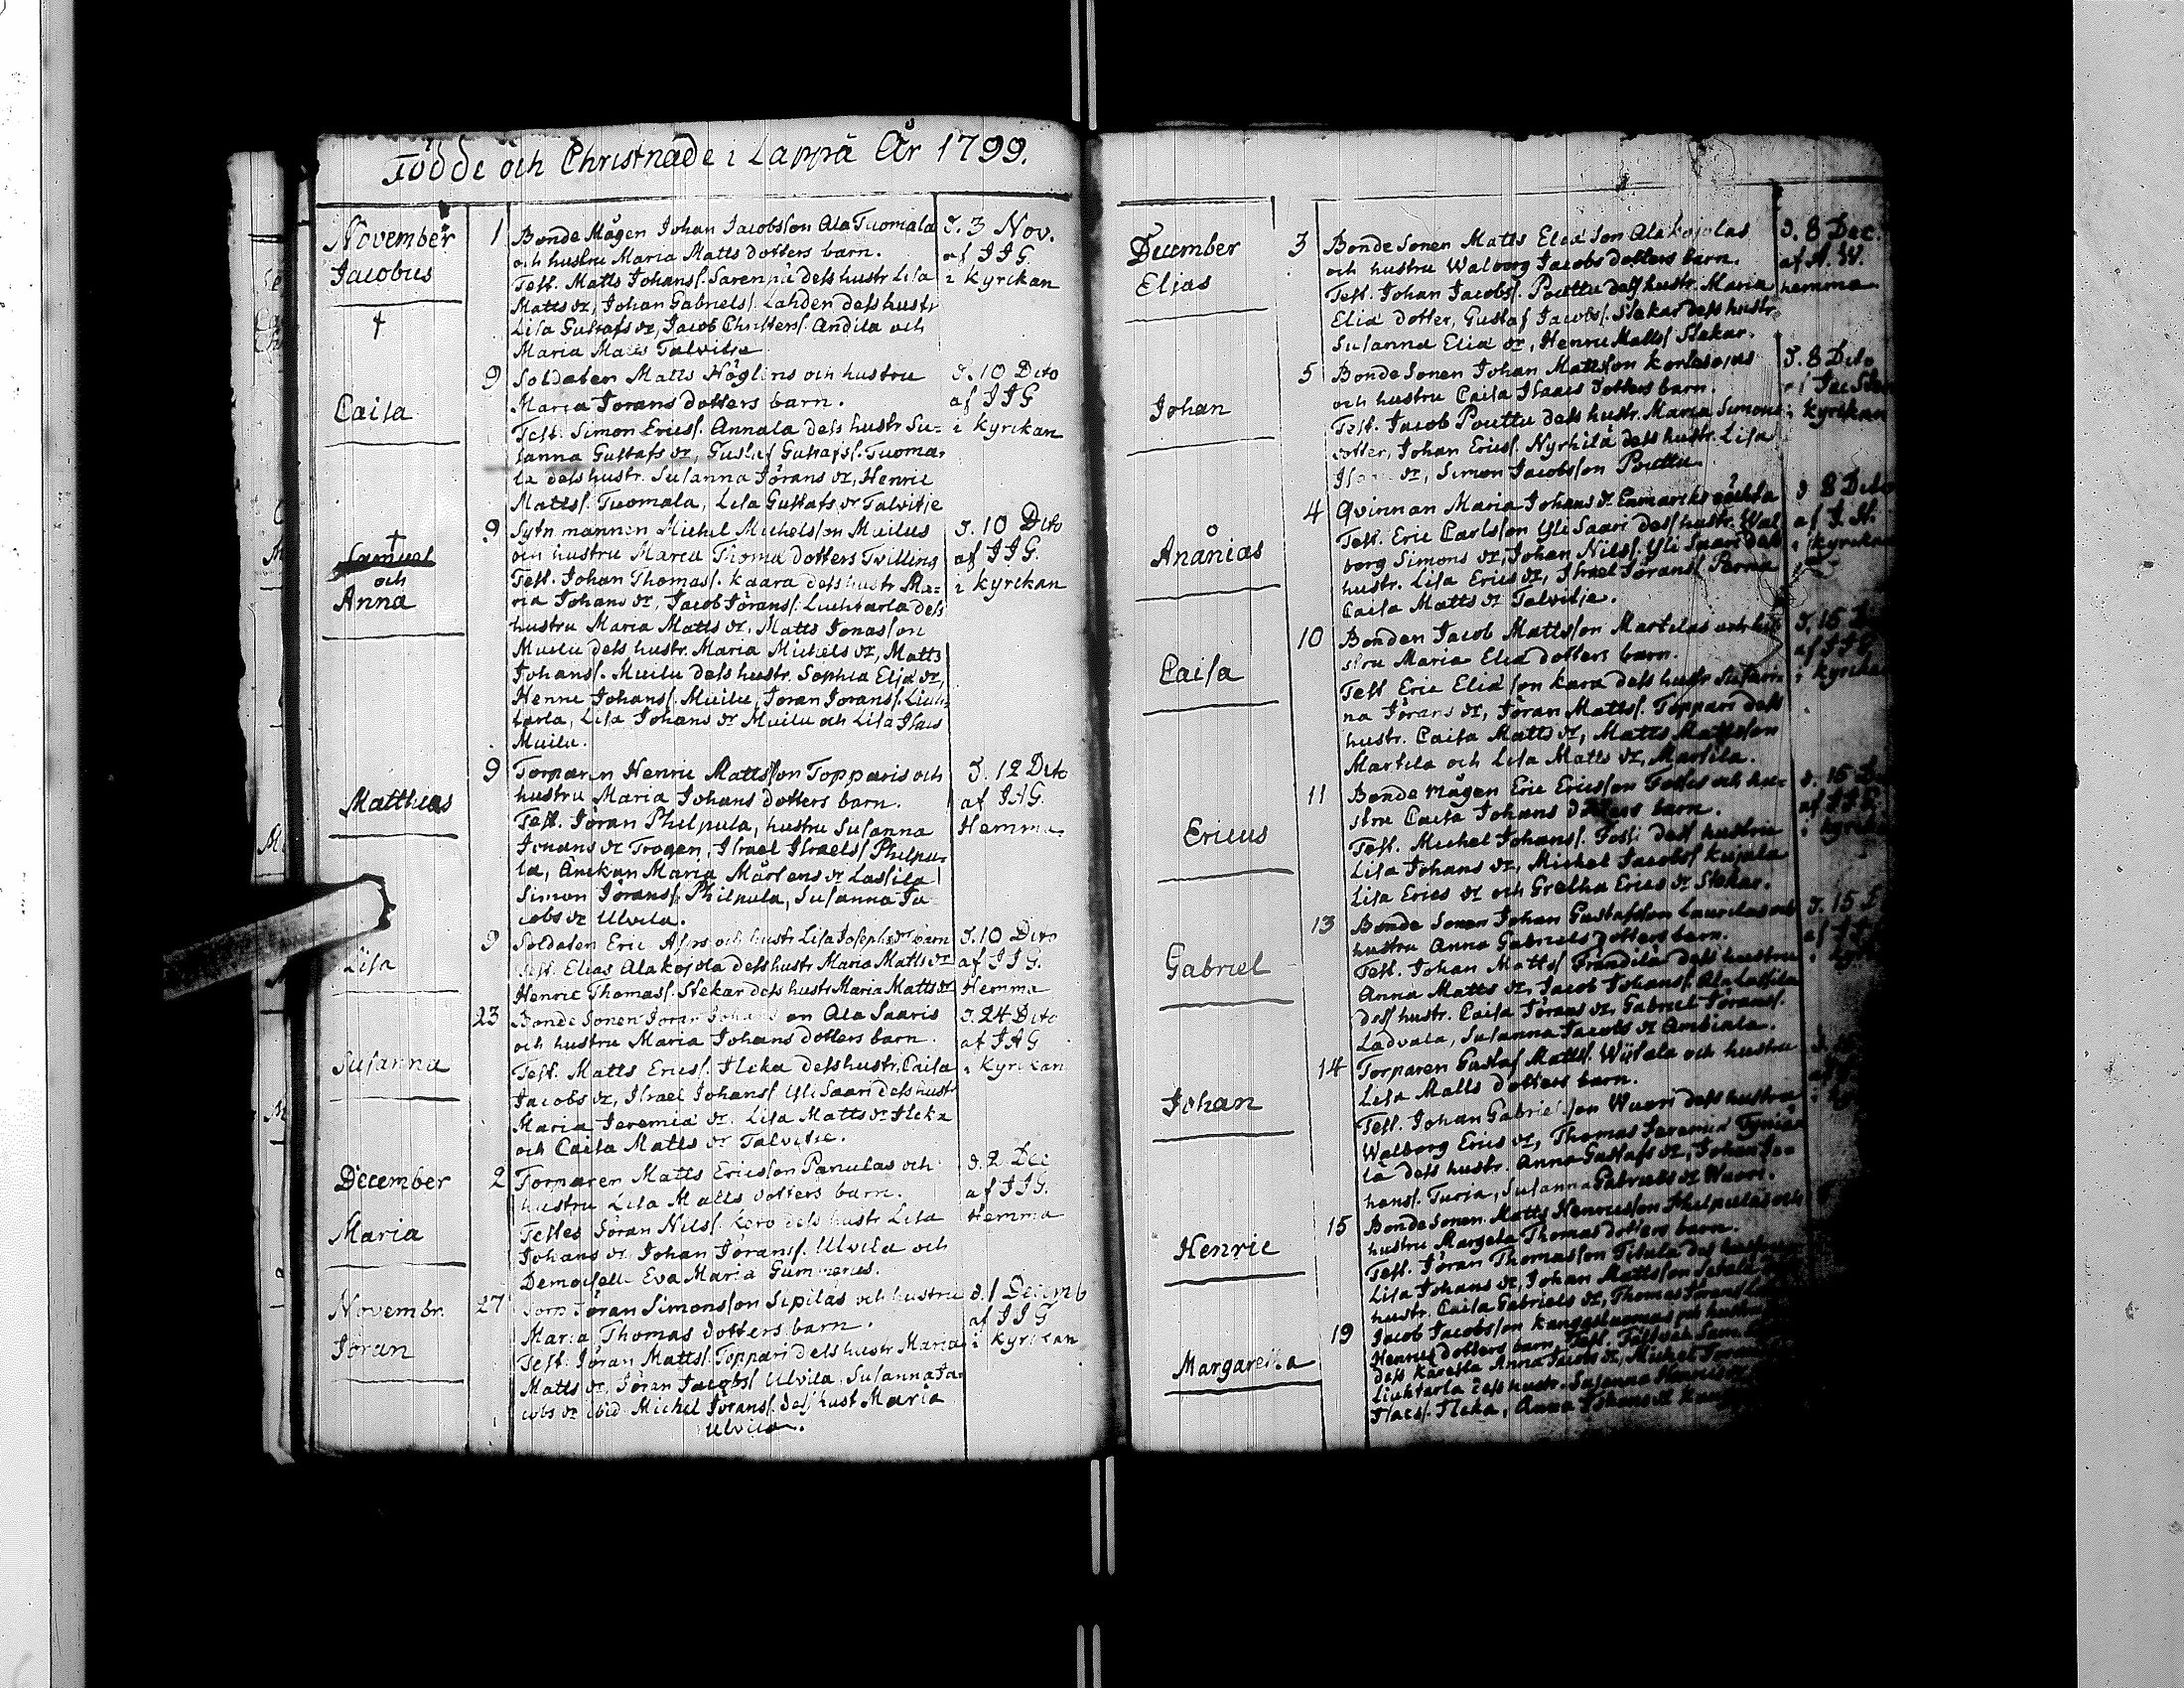 Födde och Christnade i Lappå År 1799.
November 1 Bonde Mågen Johan Jacobsson Ala Tuomala d. 3 Nov.
Jacobus och hustru Maria Matts dotters barn. af JJG.
Test. Matts Johanss. dess hustr Lisa i Kyrckan
Matts dr, Johan Gabrielss. Lahden dess hustr
† Lisa Gustafs dr, Jacob Christerss. Andila och
Maria Matts Talvitje
9 Soldaten Matts Höglins och hustru d. 10 Dito
Caisa Maria Jörans dotters barn. af JJG
Test. Simon Ericss. Annala dess hustr Su= i Kyrckan
sanna Gustafs dr, Gustaf Gustafss. Tuoma,
la dess hustr. Susanna Jörans dr, Henric
Mattss. Tuomala, Lisa Gustafs dr Talvitje
† 9 Sytn mannen Michel Michelsson Muilus d. 10 Dito
Samuel och hustru Maria Thoma dotters Tvilling af JJG.
och Test. Johan Thomass. Kaara dess hustr Ma= i Kyrckan
Anna ria Johans dr, Jacob Jöranss. Liuhtarla dess
hustru Maria Matts dr, Matts Jonasson
Muilu dess hustr. Maria Michels dr, Matts
Johanss. Muilu dess hustr. Sophia Elia dr,
Henric Johanss. Muilu, Jöran Joranss. Liuh
tarla, Lisa Johans dr Muilu och Lisa Isacs
Muilu.
9 Torparen Henric Mattsson Topparis och d. 12 Dito
Matthias hustru Maria Johans dotters barn. af JAG.
Test. Jöran Philpula, hustru Susanna Hemma
Johans dr Trogen, Israel Israelss Philpu,
la, Änckan Maria Mårtens dr Lassila
Simon Jöranss Philpula, Susanna Ja
cobs dr Ulvila.
9 Soldaten Eric Asps och hustr Lisa Josephs dr barn d. 10 Dito
Lisa Test. Elias Alakojola dess hustr Maria Matts dr af JJG.
Henric Thomass. Stekar dess hustr Maria Matts dr Hemma
23 Bonde Sonen Jöran Johansson Ala Saaris d. 24 Dito
och hustru Maria Johans dotters barn. af JAG
Susanna Test. Matts Ericss. Fleka dess hustr, Caisa i Kyrckan
Jacobs dr, Israel Johanss Yli Saari dess hustr
Maria Jeremia dr. Lisa Matts dr Fleka
och Caisa Matts dr Talvitje.
December 2 Torparen Matts Ericsson Panulas och d. 2 Dec
hustru Lisa Matts dotters barn. af JJG.
Maria Testes Jöran Nilss. Kero dess hustr Lisa Hemma
Johans dr Johan Jöranss. Ulvila och
Demoiselle Eva Maria Gummerus.
Novembr. 27 Jöran Simonsson Sipilas och hustru d. 1 Decemb
Maria Thomas dotters barn. af JJG
Jöran Test. Jöran Mattss. Toppari dess hustr Maria i Kyrckan
Matts dr, Jöran Jacobss Ulvila, Susanna Ja,
cobs dr ibid Michel Joranss. dess hust Maria
Ulvila.
December 3 Bonde Sonen Matts Elia Son Alakojolas d. 8 Dec.
och hustru Walborg Jacobs dotters barn. af A. W.
Elias Test. Johan Jacobss. Pouttu dess hustr. Maria hemma
Elia dotter, Gustaf Jacobss. Stekar dess hustr.
Susanna Elia dr, Henric Mattss Stekar.
5 Bonde Sonen Johan Mattsson d. 8 Dito
och hustru Caisa Isaacs dotters barn.
Johan Test. Jacob Pouttu dess hustr. Maria Simons i Kyrckan
dotter, Johan Ericss. Nyrhilä dess hustr. Lisa
dr, Simon Jacobsson Pouttu.
4 Qvinnan Maria Johans dr d 8 Dito
Test. Eric Carlsson Yli Saari dess hustr. Wal af J. H.
Ananias borg Simons dr, Johan Nilss. Yli Saari dess i Kyrckan
hustr. Lisa Erics dr, Israel Jöranss Perna
Caisa Matts dr Talvitje.
10 Bonden Jacob Mattsson Martilas och hu d. 15
stru Maria Elia dotters barn. af JJG
Caisa Test Eric Elia son Kara dess hustr Susan i Kyrckan
na Jörans dr, Jöran Mattss. Toppari dess
hustr. Caisa Matts dr, Matts Mattsson
Martila och Lisa Matts dr, Martila.
11 Bonde Mågen Eric Ericsson och hu= d. 15
stru Caisa Johans dotters barn. af JJG
Ericus Test. Michel Johanss. dess hustru i Kyrcka
Lisa Johans dr, Michel Jacobss Kujala
Lisa Erics dr och Gretha Erics dr Stekar.
13 Bonde Sonen Johan Gustafsson Laurilas och d. 15
hustru Anna Gabriels dotters barn.
Gabriel Test. Johan Mattss Frändilä dess hustru
Anna Matts dr, Jacob Johanss. Ala Lassila
dess hustr. Caisa Jörans dr, Gabriel Jöranss.
Ladvala, Susanna Jacobs dr Ambiala.
14 Torparen Gustaf Mattss. Wisala och hustru
Lisa Matts dotters barn.
Johan Test. Johan Gabrielsson Wuori dess hustru
Walborg Erics dr, Thomas Jeremia
la dess hustr. Anna Gustafs dr, Johan Jo=
hanss. Turja, Susanna Gabriels dr Wuori.
15 Bonde Sonen Matts Henricsson Philpulas och
hustru Margeta Thomas dotters barn.
Henric Test. Jöran Thomasson dess hustru
Lisa Johans dr, Johan Mattsson
hustr. Caisa Gabriels dr, Thomas Jörans
19 Jacob Jacobsson Kangasluomas
Henrics dotters barn. Test.
Margaretha dess Anna Jacobs dr, Michel
Liuhtarla dess hustr. Susanna Henrics
Isacss. Fleka, Anna Johans dr